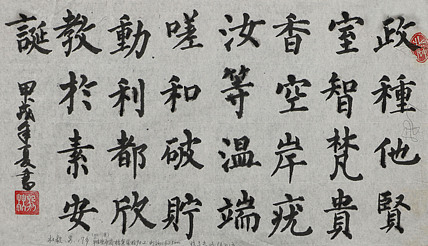 政種他賢
室智梵貴
香空岸疣
汝等溫端
嗟和破貯
動利都欣
教於素安
誕
甲戌年夏書